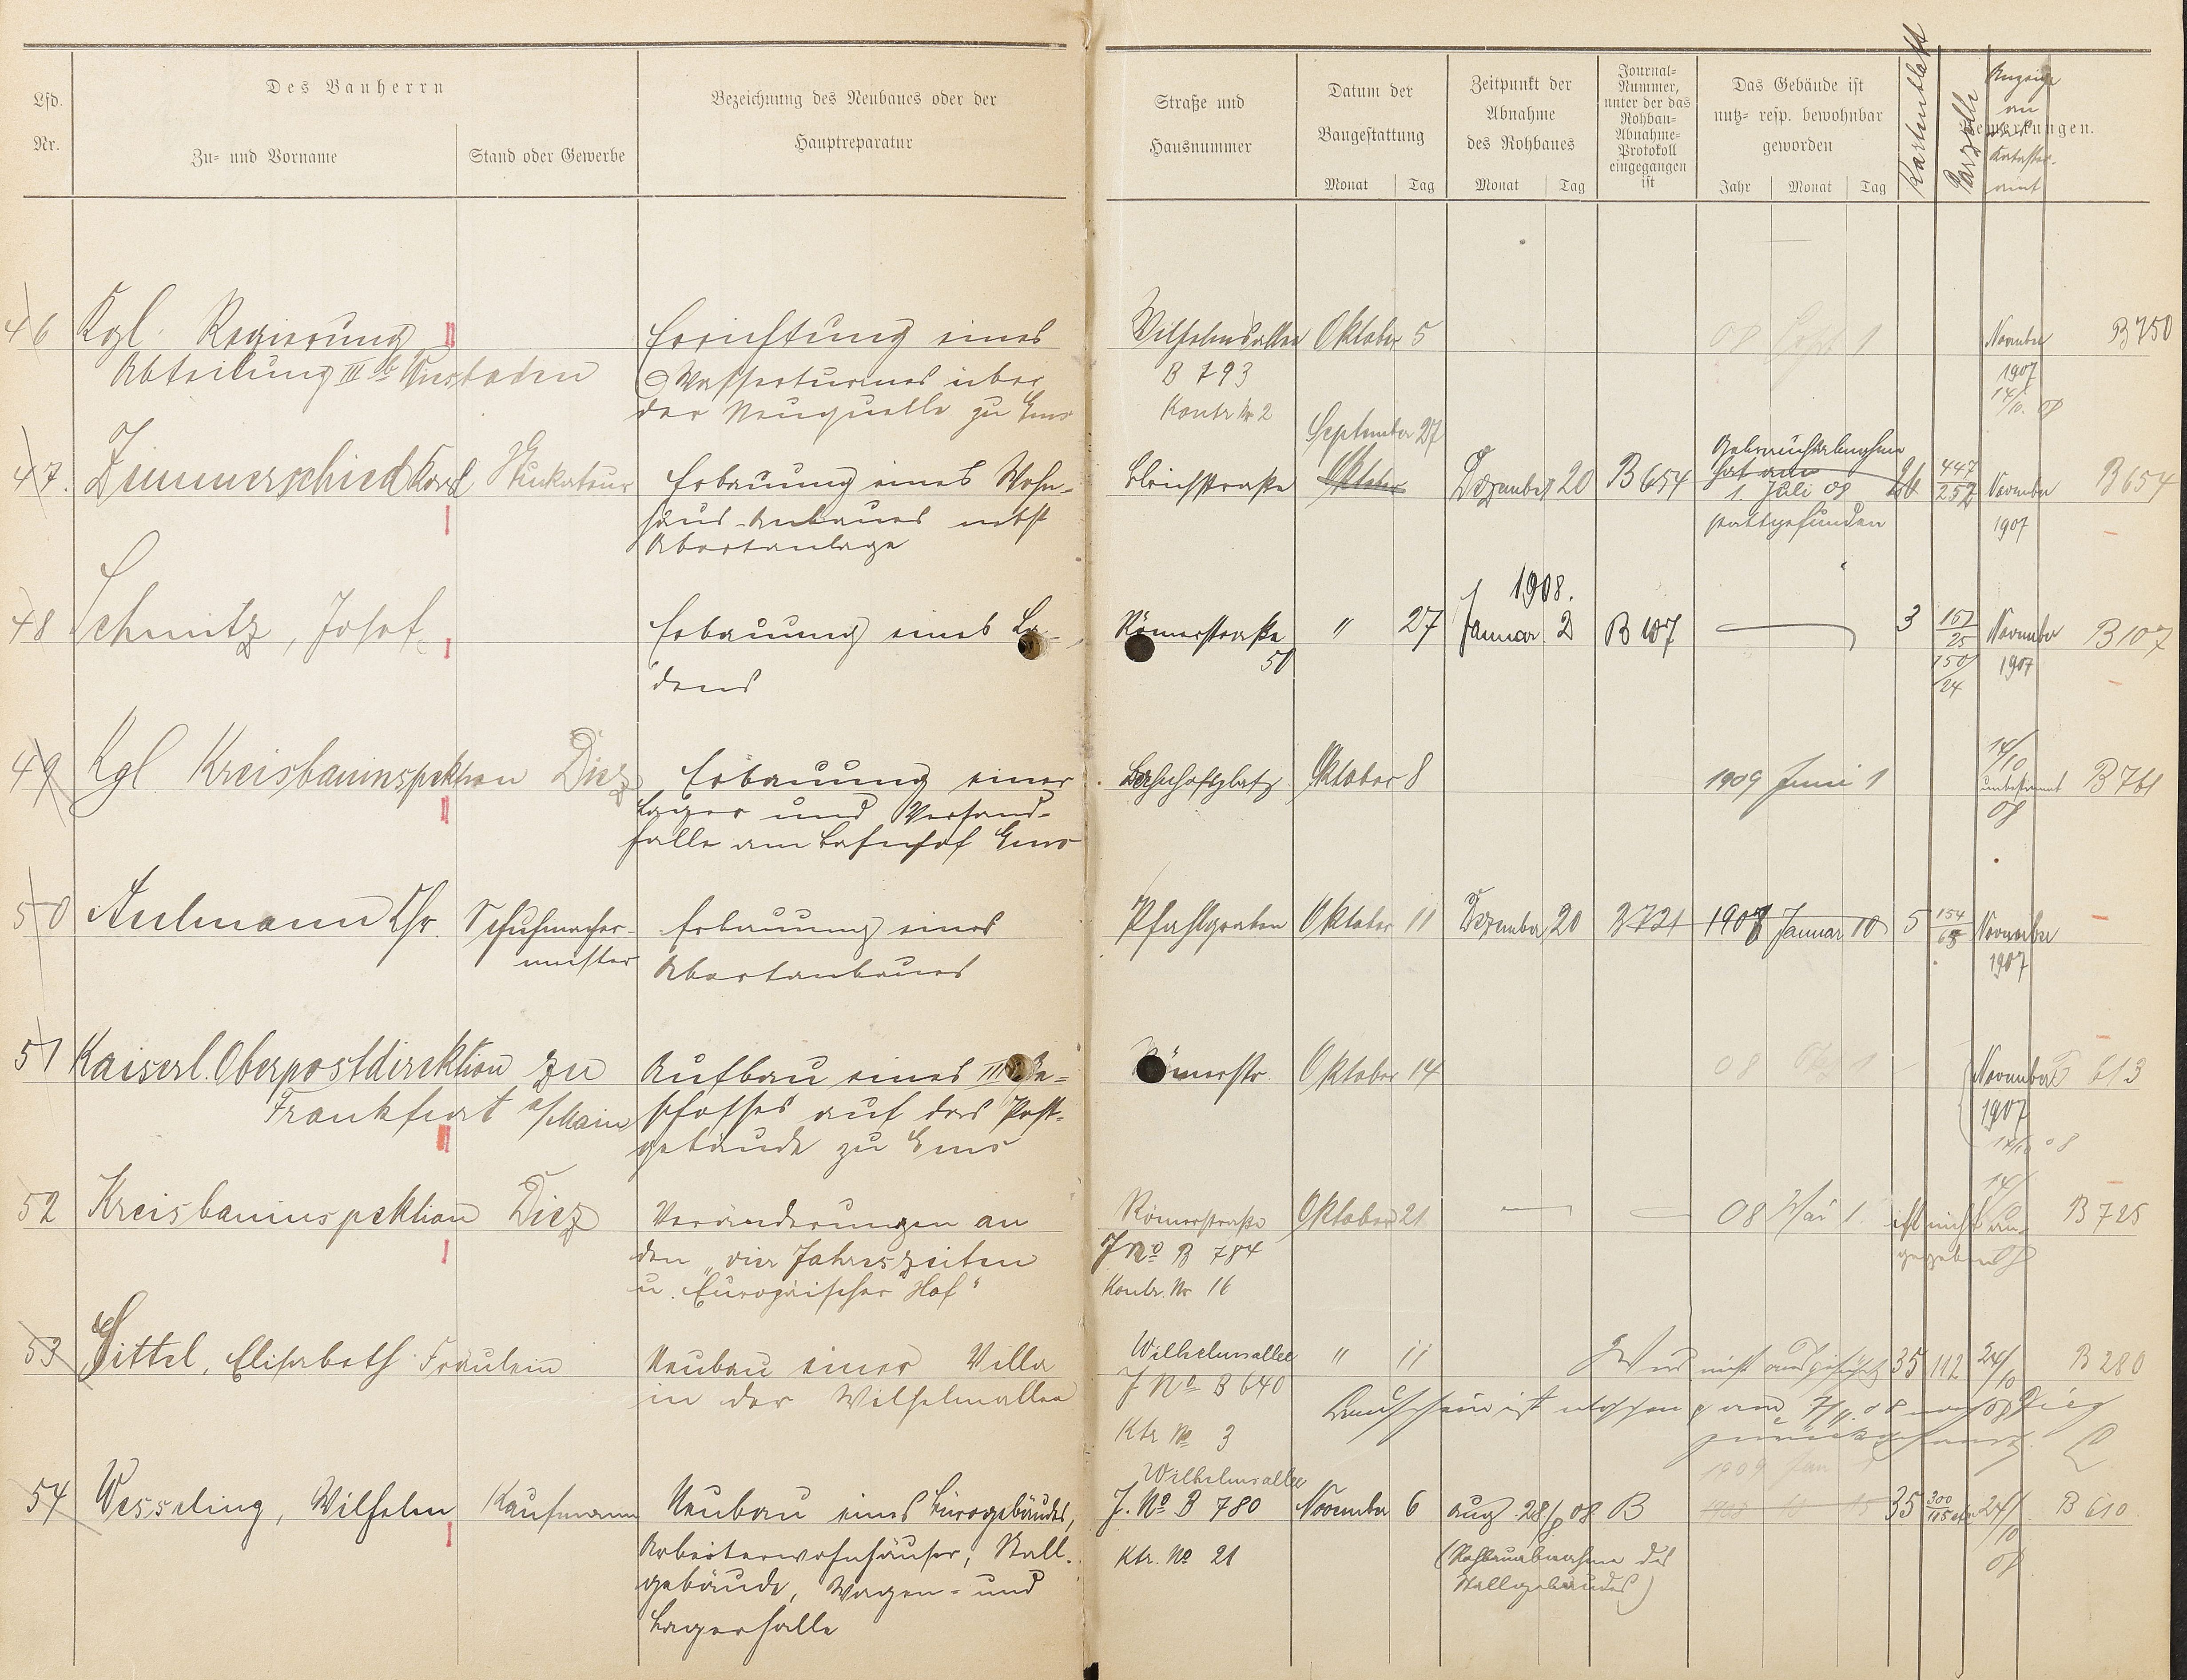 Lfd. Nr.
Des Bauherrn
Zu- und Vorname
Stand oder Gewerbe
Bezeichnung des Neubaues oder der
Hauptreparatur
Straße und
Hausnummer
Datum der
Baugestattung
Monat Tag
Zeitpunkt der
Abnahme
des Rohbaues
Monat Tag
Journal-
Nummer,
unter der das
Rohbau-
Abnahme-
Protokoll
eingegangen
ist
Das Gebäude ist
nutz- resp. bewohnbar
geworden
Jahr Monat Tag
Kartenblatt
Parzelle
Bemerkungen.
Anzeige
an
Kataster-
amt
46 Kgl. Regierung II Errichtung eines Wilhelmsallee Oktober 5 08 Sept 1 November B 750
Abteilung III b Wiesbaden Wasserturmes über B 793 1907
der Neuquelle zu Ems Kontr № 2 14/10. 08
September 27
47. Zimmerschied Karl Stukateur Erbauung eines Wohn- Bleichstraße Oktober Dezember 20 B 654 Gebrauchsabnahme hat am 447/257 November B 654
I haus-Anbaues nebst 1. Juli 08 1907
Abortanlage stattgefunden
1908.
48 Schmitz, Josef I Erbauung eines La- Römerstraße " 27 Januar 2 B 107 3 157/25 November B 107
dens 51 150/24 1907
49 Kgl Kreisbauinspektion Diez Erbauung einer Bahnhofsplatz Oktober 8 1909 Juni 1 14/10 B 761
II Lager und Versand- unbestimmt
halle am Bahnhof Ems 08
50 Aulmann Chr. Schuhmacher- Erbauung eines Pfahlgraben Oktober 11 Dezember 20 B 721 1908 Januar 10 5 154/65 November
meister Abortanbaues 1907
51 Kaiserl. Oberpostdirektion zu Aufbau eines III Ge- Römerstr. Oktober 14 08 1 November B 613
Frankfurt a/Main schosses auf das Post- 1907
II gebäude zu Ems 14/10 08
52 Kreisbauinspektion Diez Veränderungen an Römerstraße Oktober 21 08 Mai 1. ist nicht an- 14/ B 725
I den "vier Jahreszeiten J № B 784 gegeben
u. Europäischer Hof" Kontr. Nr 16
53 Sittel, Elisabeth Fräulein Neubau einer Villa Wilhelmsallee " 11 Wird nicht ausgeführt 35 112 24/10 B 280
in der Wilhelmallee J № B 640 Bauschein ist am 7/11. 08 nach Diez
Ktr № 3 zurückgesandt.
Wilhelmsallee 1909 Jan
54 Wesseling, Wilhelm Kaufmann Neubau eines Bürogebäudes, J. № B 780 November 6 Aug. 28/8 08. B 1908 10 15 35 300/115 etc 24/10 B 610
I Arbeiterwohnhäuser, Stall- Ktr. № 21 (Rohbauabnahme des 08
gebäude, Wagen- und Stallgebäudes)
Lagerhalle